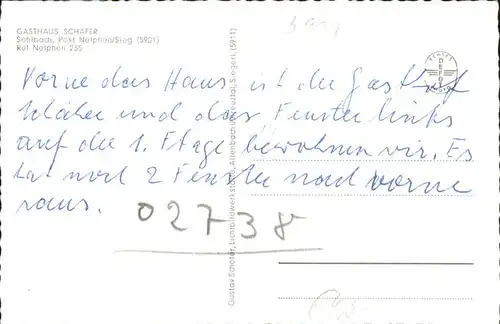 GASTHAUS SCHÄFER
Sohlbach, Post Netphen/Sieg (5901)
Ruf Netphen 235
Vorne das Haus ist der Gasthof
und das Fenster links
auf der 1. Etage bewohnen wir. Es
hat noch 2 Fenster nach vorne
raus.
02738
Gustav Schäfer, Lichtbildwerkstätte, Allenbach (Kreuztal, Siegerl. (5911)